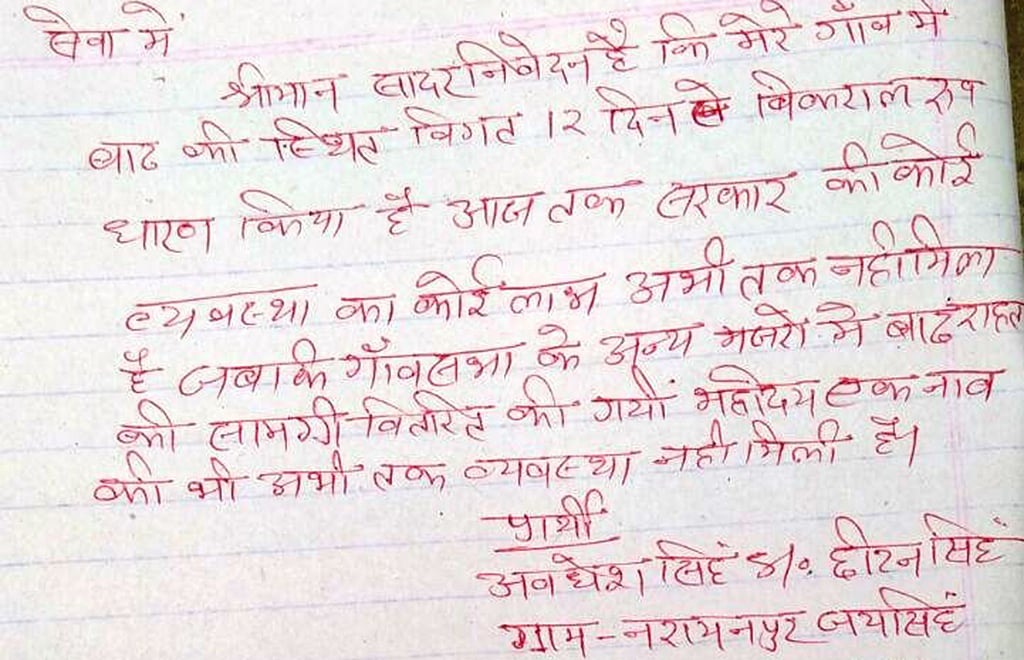 सेवा में
श्रीमान सादर निवेदन है कि मेरे गाँव मे
बाढ की स्थित विगत 12 दिन से विकराल रुप
धारण किया है आज तक सरकार की कोई
व्यवस्था का कोई लाभ अभी तक नही मिला
है जबकि गाँवसभा के अन्य मजरो मे बाढं राहत
की सामग्री वितरित की गयी महोदय एक नाव
की भी अभी तक व्यवस्था नही मिली है।
प्रार्थी
अवधेश सिहं S/० छीटन सिहं
ग्राम - नरायनपुर जयसिहं